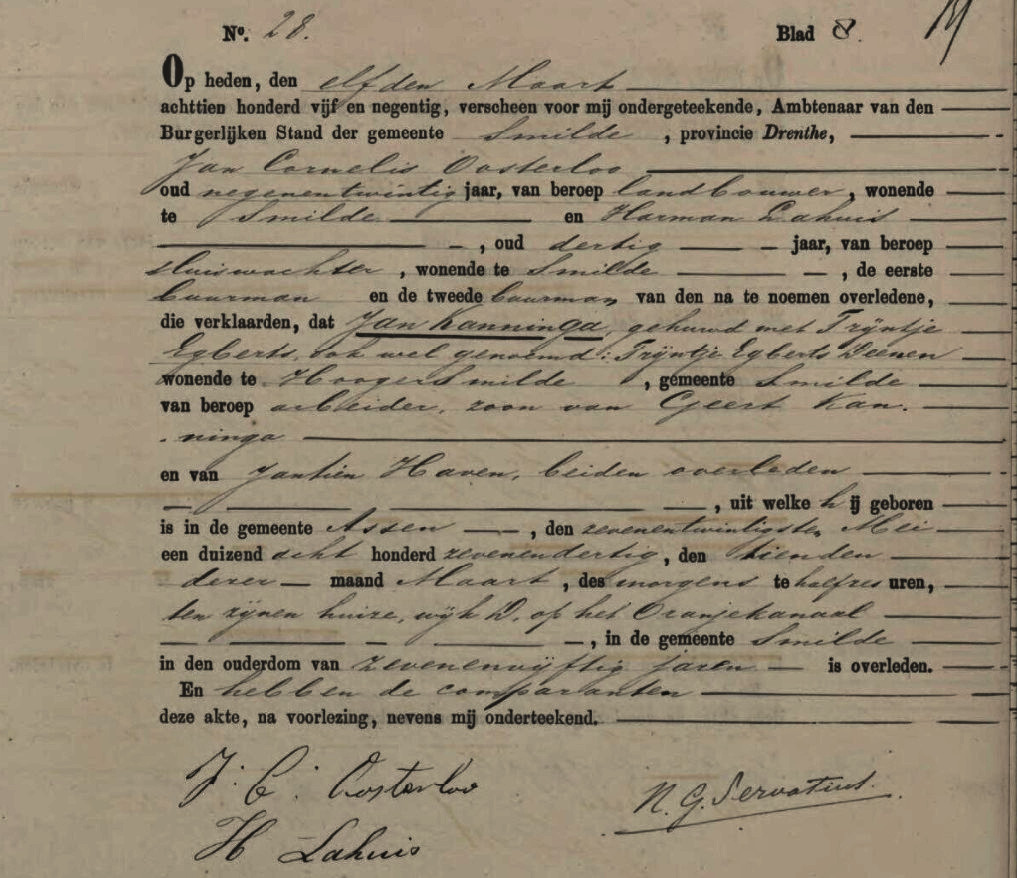 Nº. 28. Blad 8.
Op heden, den elfden Maart
achttien honderd vijf en negentig, verscheen voor mij ondergeteekende, Ambtenaar van den
Burgerlijken Stand der gemeente Smilde, provincie Drenthe,
Jan Cornelis Oosterloo
oud negenentwintig jaar, van beroep landbouwer, wonende
te Smilde en Harman Lahuis
, oud dertig jaar, van beroep
sluiswachter, wonende te Smilde, de eerste
buurman en de tweede buurman van den na te noemen overledene,
die verklaarden, dat Jan Kanninga, gehuwd met Trijntje
Egberts, ook wel genoemd: Trijntje Egberts Deenen
wonende te Hoogersmilde, gemeente Smilde
van beroep arbeider, zoon van Geert Kan-
ninga
en van Jantien Haven, beiden overleden
, uit welke hij geboren
is in de gemeente Assen, den zevenentwintigsten Mei
een duizend acht honderd zevenendertig, den tienden
dezer maand Maart, des morgens te halfzes uren,
ten zijnen huize, wijk D, op het Oranjekanaal
, in de gemeente Smilde
in den ouderdom van zevenenvijftig jaren is overleden.
En hebben de comparanten
deze akte, na voorlezing, nevens mij onderteekend.
J. C. Oosterloo
N. G. Servatius.
H Lahuis